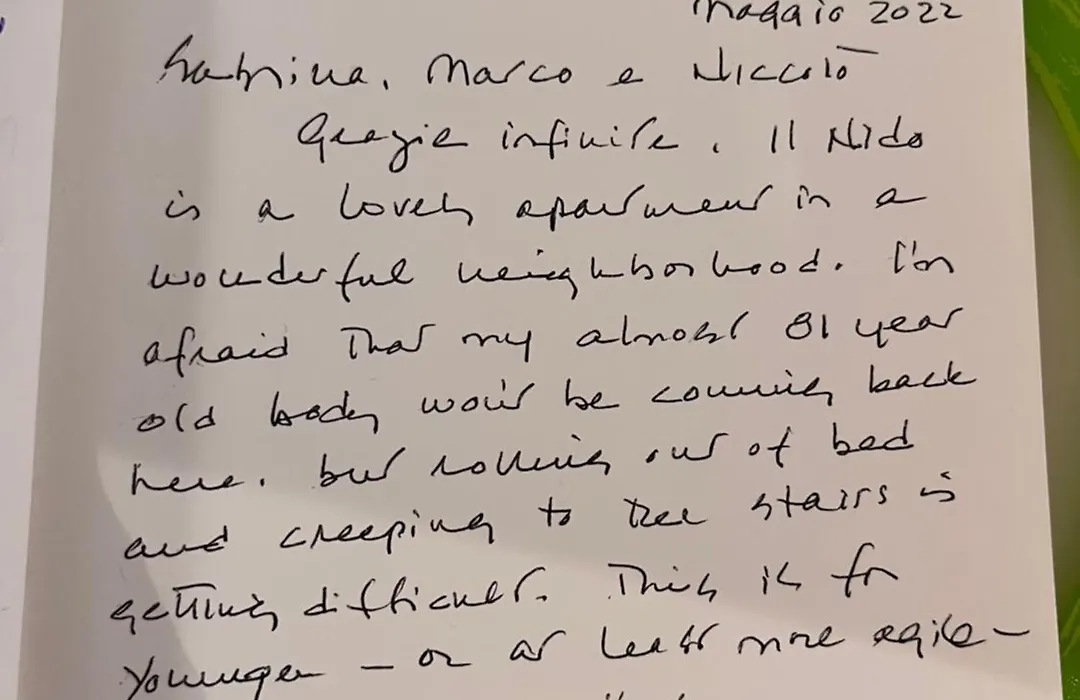 Maggio 2022
Sabrina, Marco e Niccolò
Grazie infinite. Il Nido
is a lovely apartment in a
wonderful neighborhood. I'm
afraid that my almost 81 year
old body won't be coming back
here. but rolling out of bed
and creeping to the stairs is
getting difficult. This is for
younger - or at least more agile -